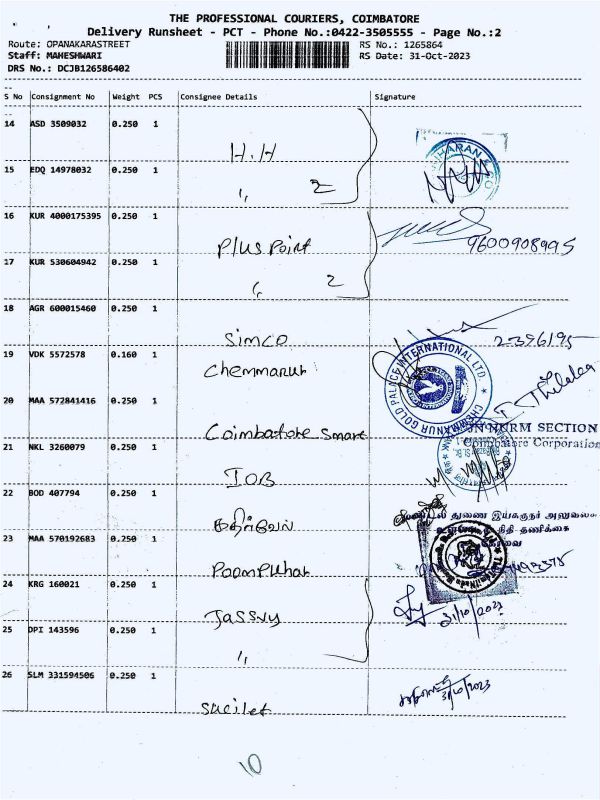 THE PROFESSIONAL COURIERS, COIMBATORE
Delivery Runsheet - PCT - Phone No.:0422-3505555 - Page No.:2
Route: OPANAKARASTREET
RS No.: 1265864
Staff: MAHESHWARI
RS Date: 31-Oct-2023
DRS No.: DCJB126586402
S No Consignment No Weight PCS Consignee Details Signature
14 ASD 3509032 0.250 1
H.H
15 EDQ 14978032 0.250 1
" 2
16 KUR 4000175395 0.250 1
Plus Point 9600908995
17 KUR 530604942 0.250 1
" 2
18 AGR 600015460 0.250 1
Simco 2396195
19 VDK 5572578 0.160 1
Chemmanur
CHEMMANUR GOLD PALACE INTERNATIONAL LTD.
20 MAA 572841416 0.250 1
Coimbatore Smart
JN NURM SECTION
Coimbatore Corporation
21 NKL 3260079 0.250 1
IOB
22 BOD 407794 0.250 1
கதிர்வேல்
துணை இயக்குநர் அலுவலகம்
நிதி தணிக்கை
கோவை
23 MAA 570192683 0.250 1
Poompuhar
24 KRG 160021 0.250 1
Jassvy 31/10/2023
25 DPI 143596 0.250 1
"
26 SLM 331594506 0.250 1
31/10/2023
10